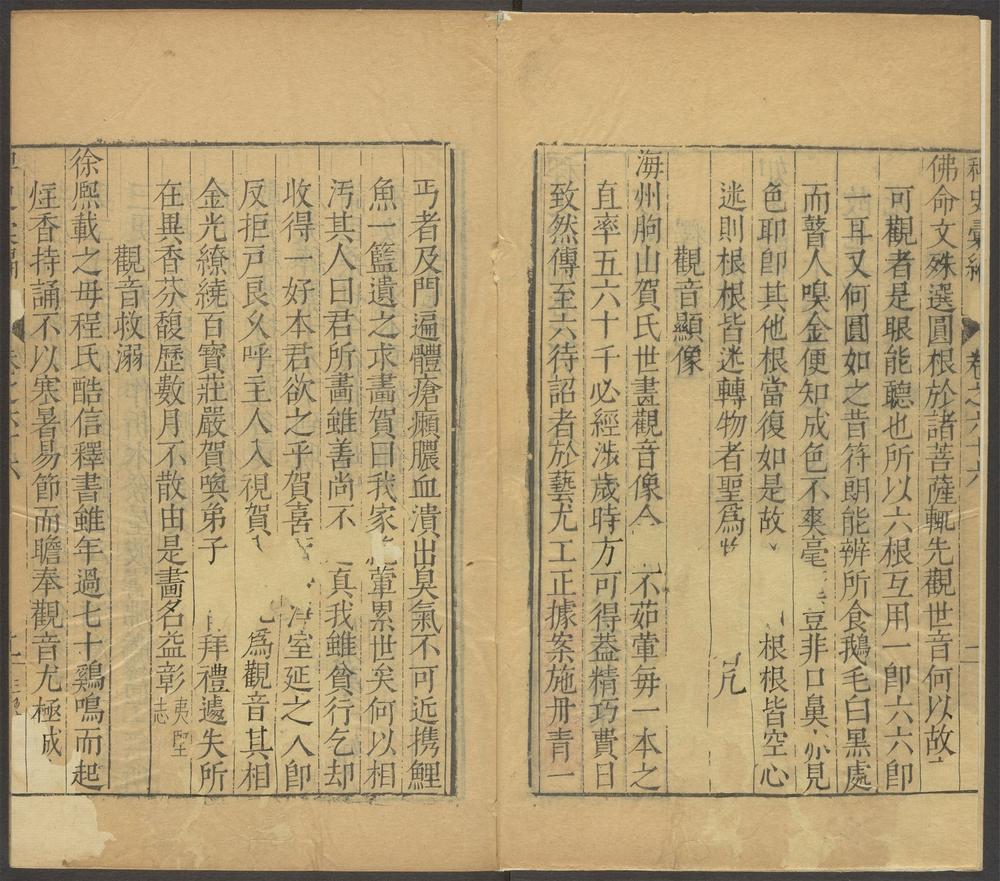 稗史彙編 卷之六十六 二
佛命文殊選圓根於諸菩薩輒先觀世音何以故
可觀者是眼能聽也所以六根互用一卽六六卽
一耳又何圓如之昔符朗能辨所食鵝毛白黑處
而瞽人嗅金便知成色不爽毫 豈非口鼻亦見
色耶卽其他根當復如是故 根根皆空心
迷則根根皆迷轉物者聖爲物 凡
觀音顯像
海州朐山賀氏世畫觀音像 不茹葷每一本之
直率五六十千必經涉歲時方可得葢精巧費日
致然傳至六待詔者於藝尤工正據案施丹青一
丐者及門遍體瘡癩膿血潰出臭氣不可近携鯉
魚一籃遺之求畫賀曰我家 葷累世矣何以相
汚其人曰君所畫雖善尚不 真我雖貧行乞却
收得一好本君欲之乎賀喜 淨室延之入卽
反拒戸良久呼主人入視賀 爲觀音其相
金光繚繞百寳莊嚴賀喚弟子 拜禮遽失所
在異香芬馥歷數月不散由是畫名益彰 夷堅志
觀音救溺
徐熙載之母程氏酷信釋書雖年過七十鷄鳴而起
炷香持誦不以寒暑易節而瞻奉觀音尤極